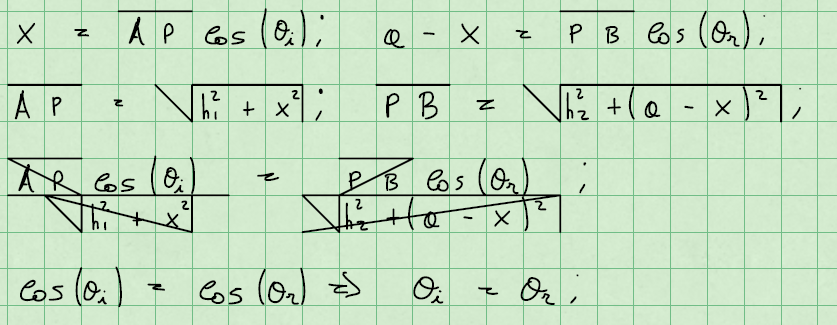 x = \overline{AP} cos(θ_i); a - x = \overline{PB} cos(θ_r);
\overline{AP} = √(h_1^2 + x^2); \overline{PB} = √(h_2^2 + (a - x)^2);
\overline{AP} cos(θ_i) / √(h_1^2 + x^2) = \overline{PB} cos(θ_r) / √(h_2^2 + (a - x)^2);
cos(θ_i) = cos(θ_r) ⇒ θ_i = θ_r;